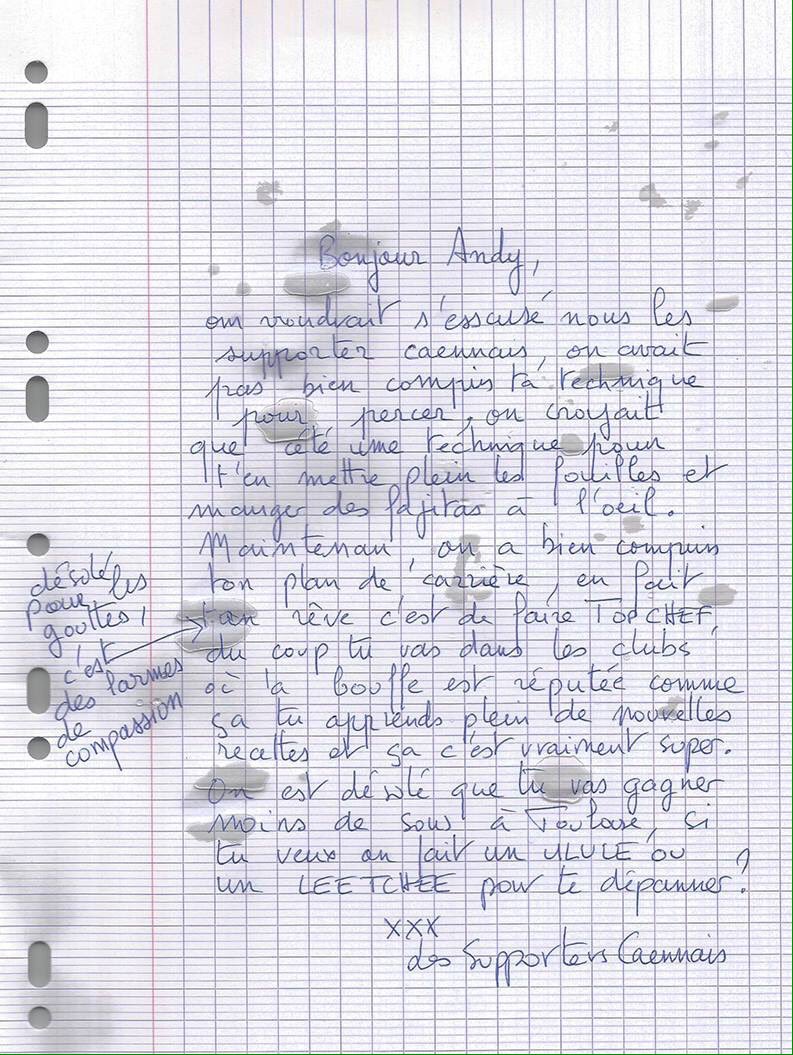 Bonjour Andy,
on voudrait s'escusé nous les
supporter caennais, on avait
pas bien compris ta technique
pour percer, on croyait
que cété une technique pour
t'en mettre plein les fouilles et
manger des fajitas à l'oeil.
Maintenan, on a bien compris
ton plan de carrière, en fait
ton rêve c'est de faire TOP CHEF,
du coup tu vas dans les clubs
où la bouffe est réputée comme
ça tu apprends plein de nouvelles
recettes et ça c'est vraiment super.
On est désolé que tu vas gagner
moins de sous à Toulouse, si
tu veux on fait un ULULE ou
un LEETCHEE pour te dépanner?
XXX
des Supporters Caennais
désolé
pour les
gouttes,
c'est
des larmes
de
compassion